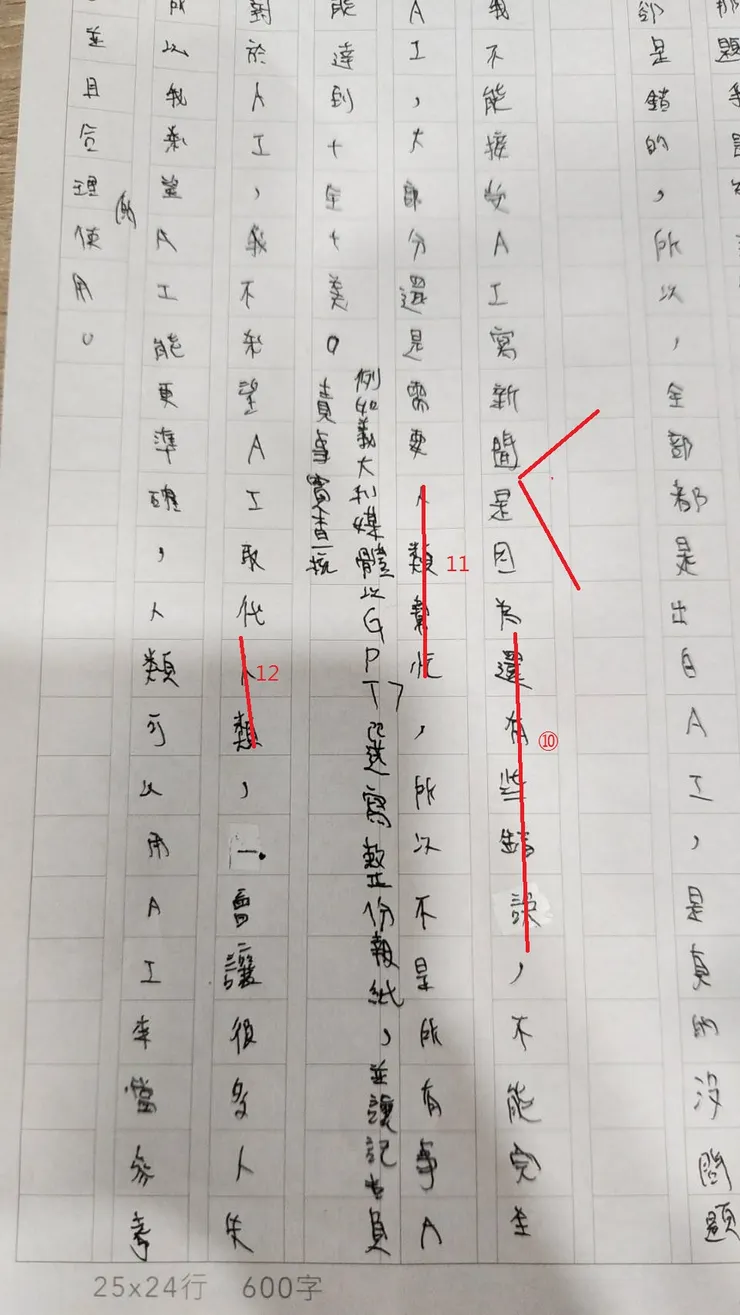 題
卻是錯的，所以，全部都是出自AI，是真的沒問題
我不能接受AI寫新聞是因為還有些錯誤，不能完全
⑩
AI，大部分還是需要人類幫忙，所以不是所有事A
11
例如義大利媒體以GPT已選寫整份報紙，並讓記者負
責事實查核
能達到十全十美。
對於AI，我不希望AI取代人類，一會讓很多人失
12
所以我希望AI能更準確，人類可以用AI來當參考
的
並且合理使用。
25x24行 600字